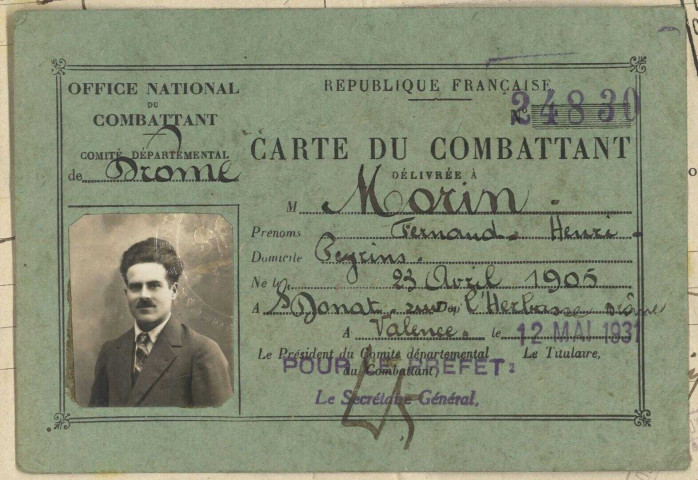 OFFICE NATIONAL
DU
COMBATTANT
COMITÉ DÉPARTEMENTAL
de Drôme
REPUBLIQUE FRANÇAISE
N° 24830
CARTE DU COMBATTANT
DÉLIVRÉE À
M Morin
Prénoms Fernand Henri
Domicile Peyrins
Né le 23 Avril 1905
A St Donat l'Herbasse Drôme
A Valence le 12 MAI 1931
Le Président du Comité départemental Le Titulaire,
du Combattant,
POUR LE PREFET:
Le Secrétaire Général,